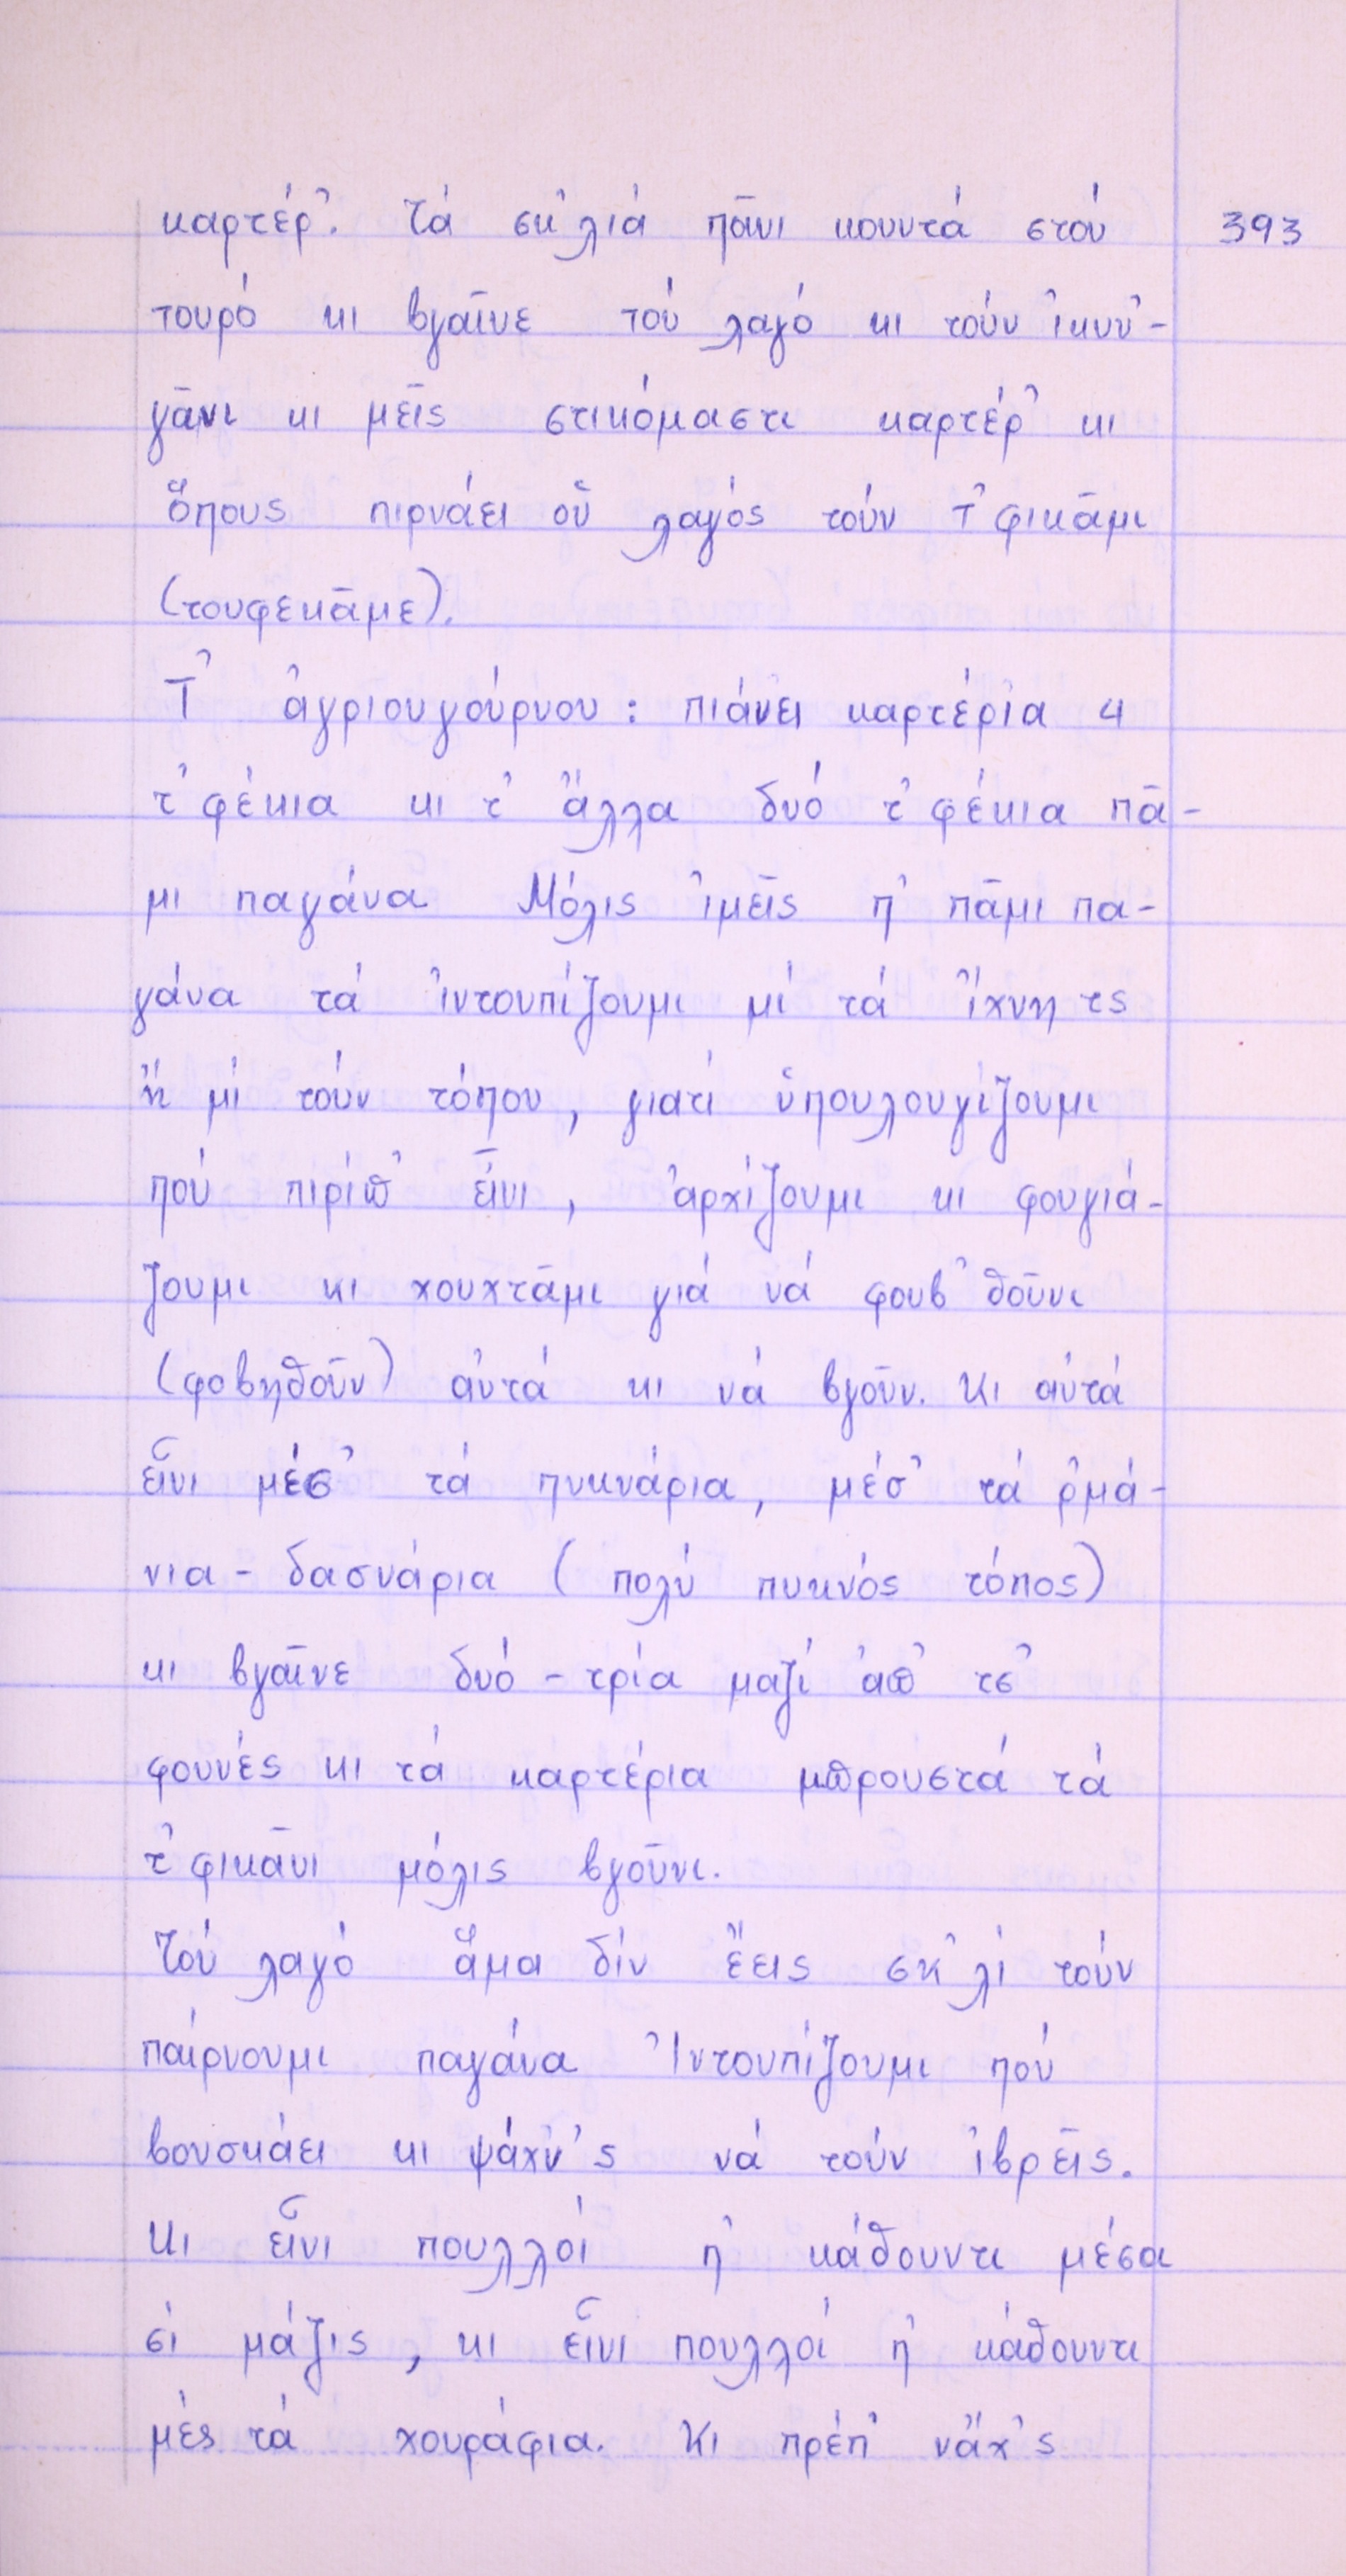 καρτέρ'. Τά σκ'λιά πᾶνι κουντά στού 393
τουρό κι βγαῖνε τού λαγό κι τούν ἰκυν'-
γᾶνι κι μεῖς στικόμαστι καρτέρ' κι
ὅπους πιρνάει οὑ λαγός τούν τ'φικᾶμι
(τουφεκᾶμε).
Τ' ἀγριουγούρνου: πιάνει καρτέρια 4
τ'φέκια κι τ' ἄλλα δυό τ'φέκια πᾶ-
μι παγάνα Μόλις ἰμεῖς π' πᾶμι πα-
γάνα τά ἰντουπίζουμι μί τά ἴχνη τς
ἤ μί τούν τόπου, γιατί ὑπουλουγίζουμι
πού πιρίπ' εἶνι, ἀρχίζουμι κι φουγιά-
ζουμι κι χουχτᾶμι γιά νά φουβ'θοῦνι
(φοβηθοῦν) αὐτά κι νά βγοῦν. Κι αὐτά
εἶνι μέσ' τά πυκνάρια, μέσ' τά ρ'μά-
νια - δασνάρια (πολύ πυκνός τόπος)
κι βγαῖνε δυό - τρία μαζί ἀπ' τσ'
φουνές κι τά καρτέρια μπρουστά τά
τ'φικᾶνι μόλις βγοῦνι.
Τού λαγό ἅμα δίν ἔεις σκ'λί τούν
παίρνουμι παγάνα Ἰντουπίζουμι πού
βουσκάει κι ψάχν'ς νά τούν ἰβρεῖς.
Κι εἶνι πουλλοί π' κάθουντι μέσα
σί μάζις, κι εἶνι πουλλοί π' κάθουντι
μές τά χουράφια. Κι πρέπ' νἄχ'ς